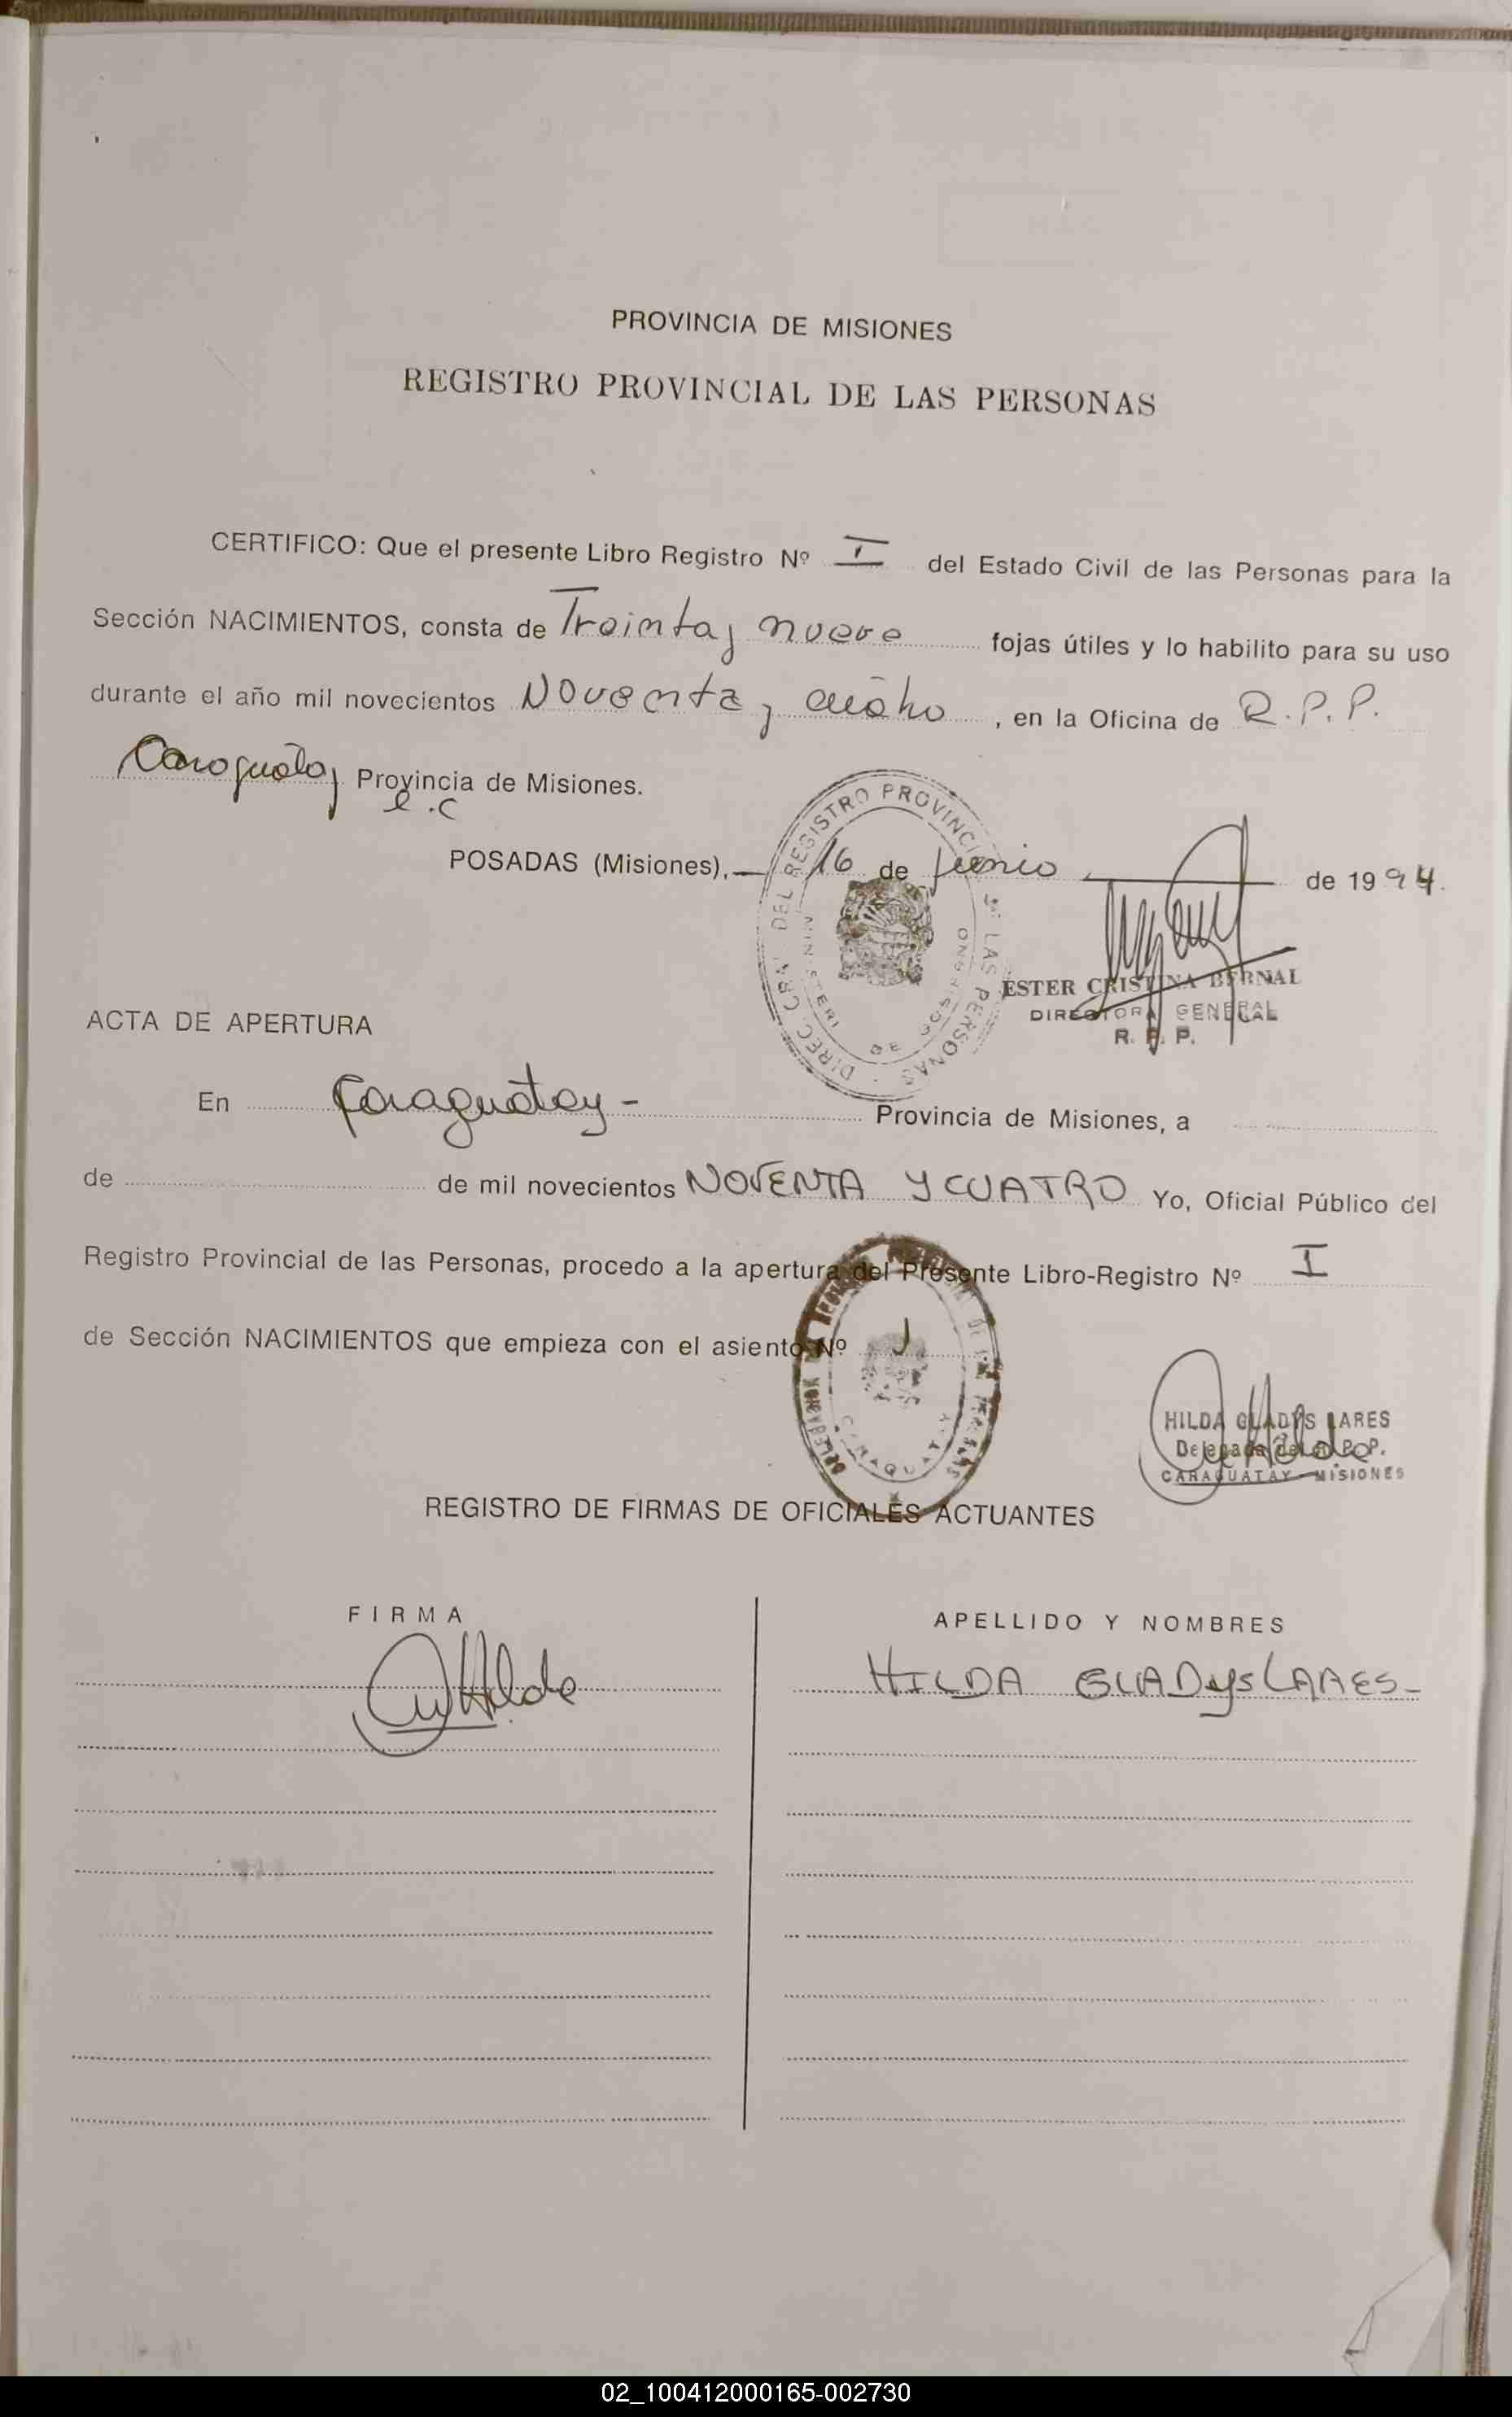 PROVINCIA DE MISIONES
REGISTRO PROVINCIAL DE LAS PERSONAS
CERTIFICO: Que el presente Libro Registro Nº I del Estado Civil de las Personas para la
Sección NACIMIENTOS, consta de Treinta y nueve fojas útiles y lo habilito para su uso
durante el año mil novecientos Noventa y cuatro, en la Oficina de R.P.P.
Caraguatay Provincia de Misiones.
POSADAS (Misiones), 16 de Junio de 1994.
DIREC. GRAL DEL REGISTRO PROVINCIAL DE LAS PERSONAS
ESTER CRISTINA BERNAL
DIRECTORA GENERAL
R. P. P.
ACTA DE APERTURA
En Caraguatay - Provincia de Misiones, a
de de mil novecientos NOVENTA Y CUATRO Yo, Oficial Público del
Registro Provincial de las Personas, procedo a la apertura del Presente Libro-Registro Nº I
de Sección NACIMIENTOS que empieza con el asiento Nº 1
CARAGUATAY
HILDA GLADYS LARES
Delegada del R. P. P.
CARAGUATAY - MISIONES
REGISTRO DE FIRMAS DE OFICIALES ACTUANTES
FIRMA APELLIDO Y NOMBRES
Hilda HILDA GLADYS LARES-
02_100412000165-002730